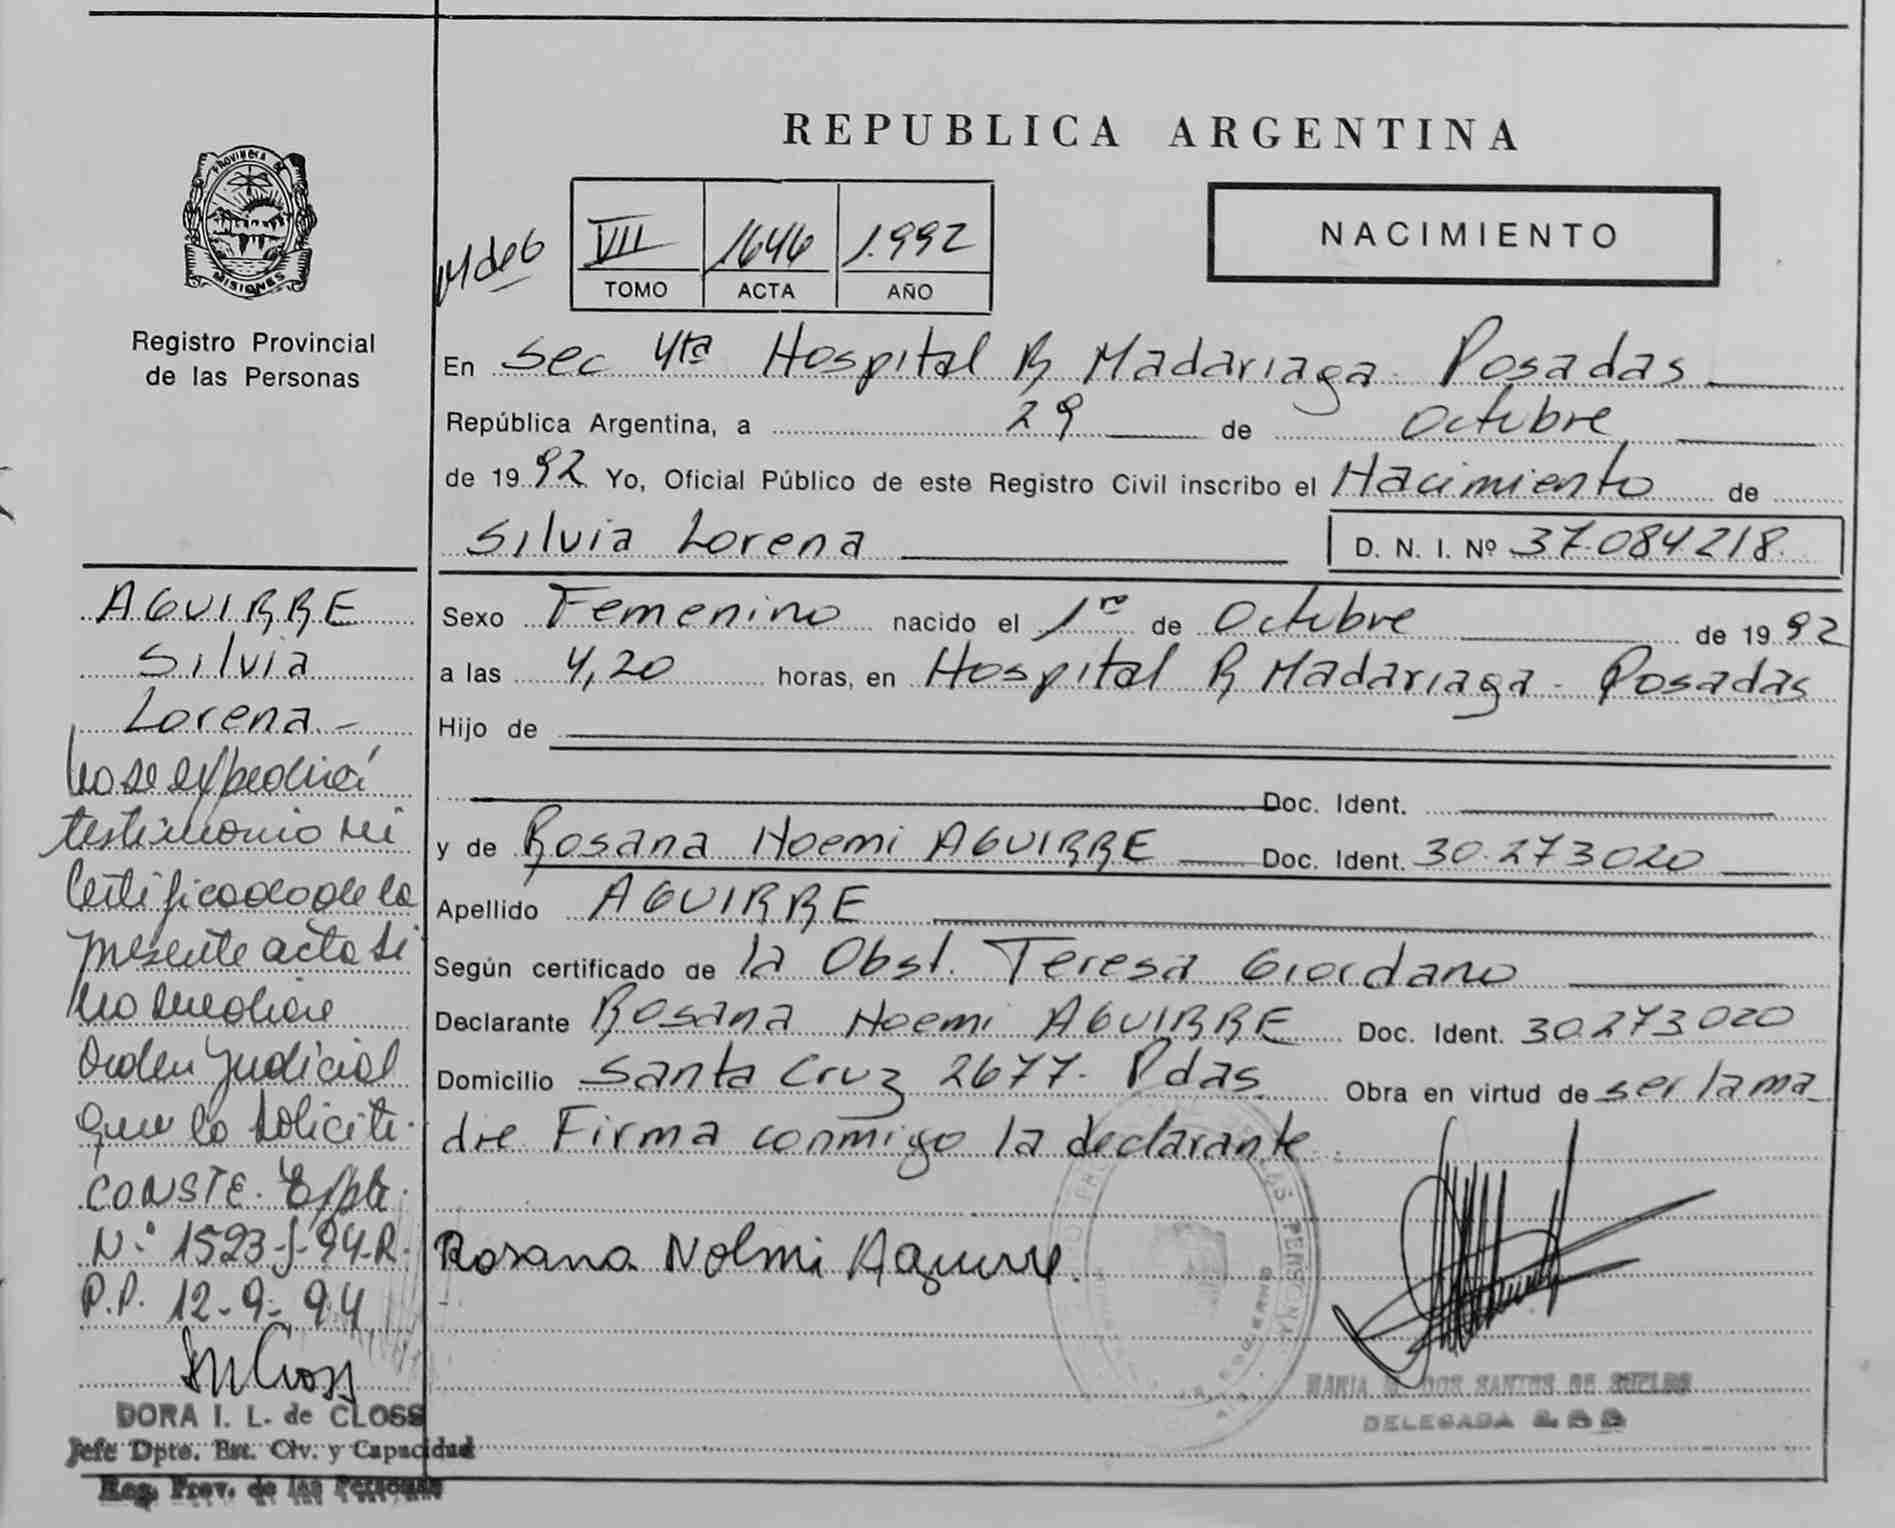 REPUBLICA ARGENTINA
PROVINCIA DE
MISIONES
Registro Provincial
de las Personas
VII 1646 1.992
TOMO ACTA AÑO
NACIMIENTO
En Sec 4ta Hospital R Madariaga Posadas
República Argentina, a 29 de Octubre
de 1992 Yo, Oficial Público de este Registro Civil inscribo el Nacimiento de
Silvia Lorena D. N. I. Nº 37.084218
Sexo Femenino nacido el 1ro de Octubre de 1992
a las 4,20 horas, en Hospital R Madariaga - Posadas
Hijo de
Doc. Ident.
y de Rosana Noemi AGUIRRE Doc. Ident. 30.273020
Apellido AGUIRRE
Según certificado de la Obst. Teresa Giordano
Declarante Rosana Noemi AGUIRRE Doc. Ident. 30.273020
Domicilio Santa Cruz 2677- Pdas. Obra en virtud de ser la ma
dre Firma conmigo la declarante
Rosana Nolmi Aguirre.
DELEGADA
AGUIRRE
Silvia
Lorena.-
No se expedirá
testimonio ni
Certificado de la
presente acta si
no mediare
Orden Judicial
que lo solicite.
CONSTE. Expte.
N.º 1523-J-94-R.
P.P. 12-9-94
DORA I. L. de CLOSS
Jefe Dpto. Est. Civ. y Capacidad
Reg. Prov. de las Personas